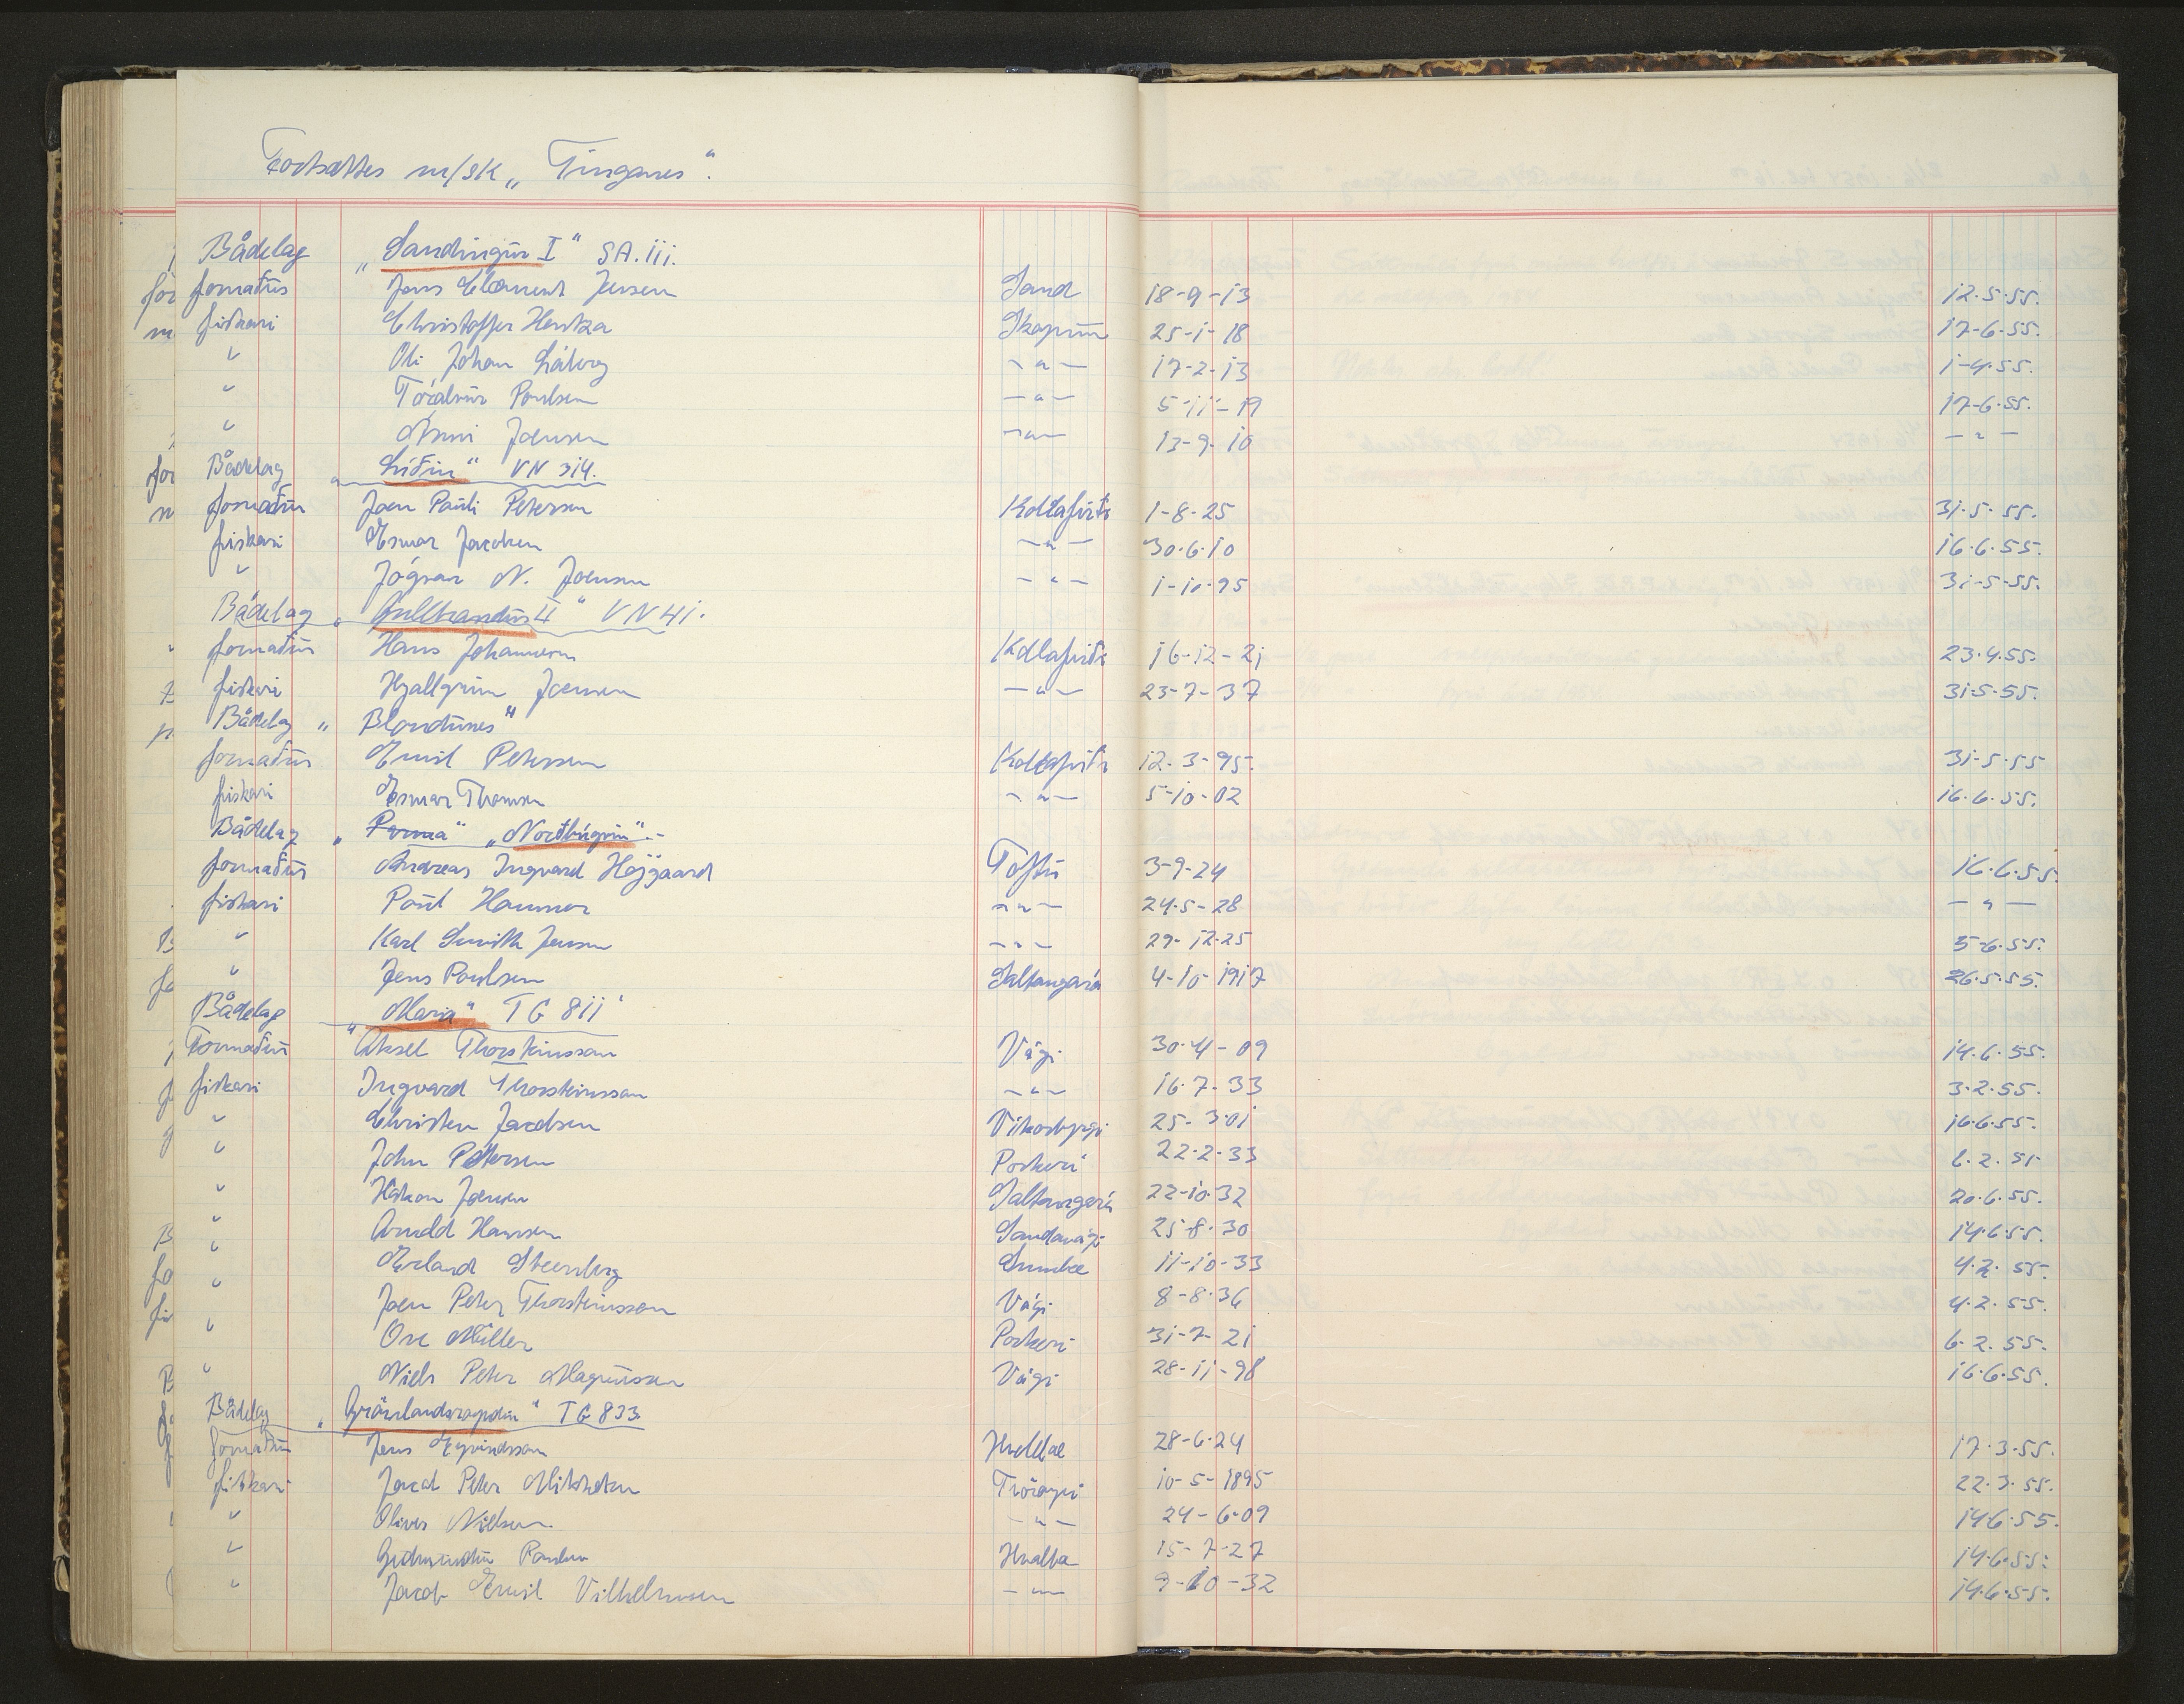 Fortsættes m/sk „Tinganes".
Bådelag „Sandingur I" SA. 111.
formaður Jens Clement Jensen Sand 18-9-13 12.5.55.
fiskari Christoffer Hentza Skopun 25-1-18 17-6.55.
" Oli Johan Láberg -"- 17-2-13 1-4.55.
" Tórálvur Poulsen -"- 5-11-19 17-6.55.
" Árni Joensen -"- 13-9-10 -"-
Bådelag „Líðin" VN 314.
formaður Joen Pauli Petersen Kollafirði 1-8-25 31.5.55.
fiskari Esmar Jacobsen -"- 30.6.10 16.6.55.
" Jógvan N. Joensen -"- 1-10-95 31-5-55.
Bådelag „Gullbrandur II" VN 41.
formaður Hans Johannesen Kollafirði 16-12-21 23.4.55.
fiskari Hjallgrim Joensen -"- 23-7-37 31-5-55.
Bådelag „ "
formaður Emil Petersen Kollafirði 12.3-95. 31-5-55
fiskari Esmar Thomsen -"- 5-10-02 16.6.55.
Bådelag „ " „Norðbúgvin".-
formaður Andreas Ingvard Højgaard Toftir 3-9-24 16.6.55.
fiskari Poul Hammer -"- 24.5-28 -"-
" Karl Smith Jensen -"- 29-12-25 5-6.55.
" Jens Poulsen Saltangará 4-10-1917 26.5.55.
Bådelag „Maria" TG 811
Formaður Aksel Thorsteinsson Vági 30-4-09 14.6.55.
fiskari Ingvard Thorsteinsson -"- 16-7-33 3.2.55.
" Christen Jacobsen Vikarbyrgi 25-3-01 16.6.55.
" John Petersen Porkeri 22-2-33 6.2.55
" Håkon Joensen Saltangará 22-10-32 20.6.55.
" Arnold Hansen Sandavági 25-8-30 14.6.55.
" Erland Steenberg Sumba 11-10-33 4.2.55.
" Joen Peter Thorsteinsson Vági 8-8-36 4.2.55.
" Ove Müller Porkeri 31-7-21 6.2.55.
" Niels Peter Magnussen Vági 28-11-98 16.6.55.
Bådelag „ " TG 833.
formaður Jens Eyvindsson Hvalba 28-6-24 17.3.55.
fiskari Jacob Peter Mikkelsen 10-5-1895 22.3.55.
" Oliver Nielsen. -"- 24-6-09 14.6.55.
" Guðmundur Poulsen Hvalba 15-7-27 14.6.55.
" Jacob Emil Vilhelmsen -"- 9-10-32 14.6.55.